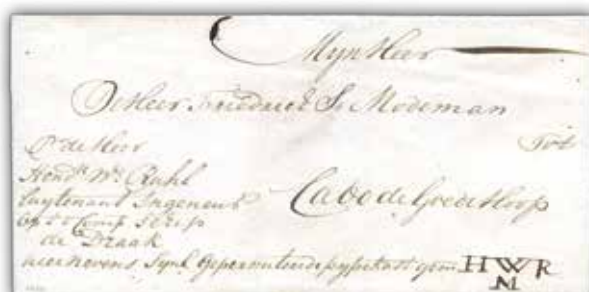 Myn Heer
De Heer Friedrich S. Modeman
Tot
Cabo de Goede Hoop
Pr de Heer
Hendk Wm Ruhl
Luytenant Ingeneur
Op t Comp Schip
de Draak
nevens
HWR
M